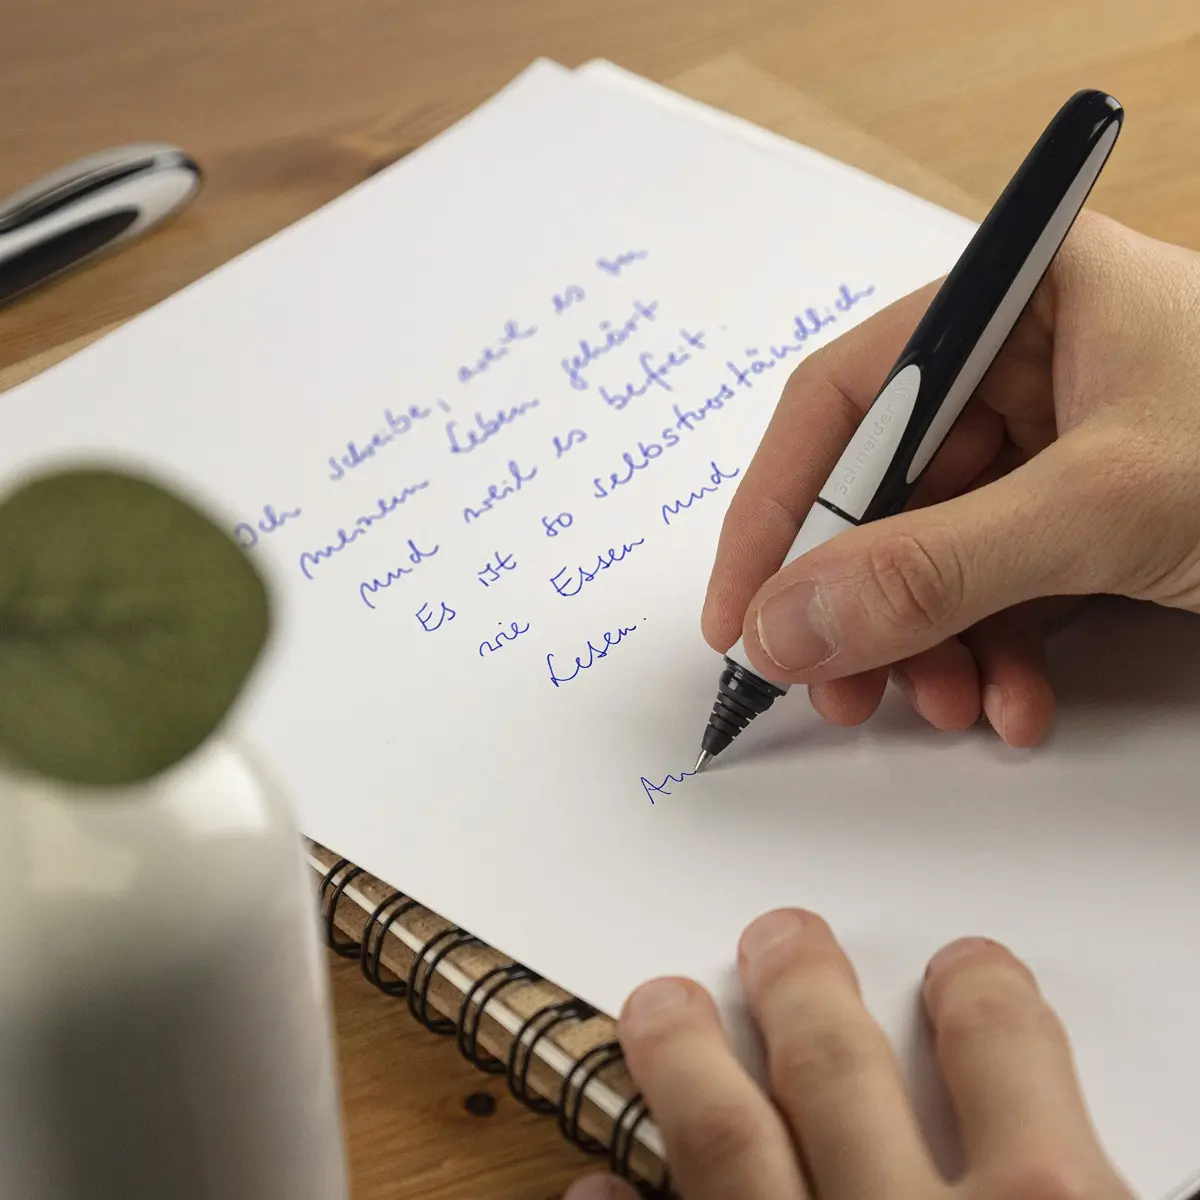 Ich schreibe, weil es zu
meinem Leben gehört
und weil es befreit.
Es ist so selbstverständlich
wie Essen und
Lesen.
An
Schneider